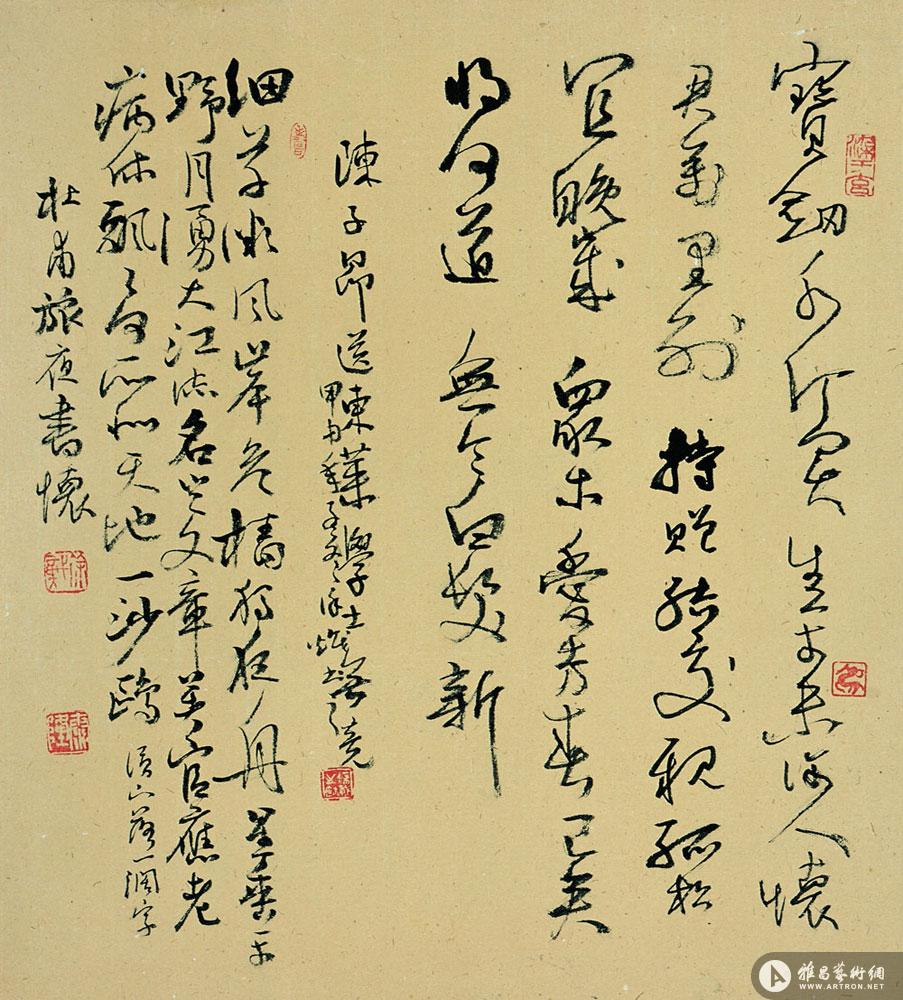 寶劍千金買 生平未許人懷
君萬里別 持贈結交親 孤松
宜晚歲 眾木愛芳春 已矣
將何道 無令白髮新
陳子昂送東萊學士無競
甲申
細草微風岸危檣獨夜舟星垂平
野月湧大江流名豈文章著官應老
病休飄飄何所似天地一沙鷗 落一闊字
杜甫旅夜書懷
雅昌藝術網
WWW.ARTRON.NET